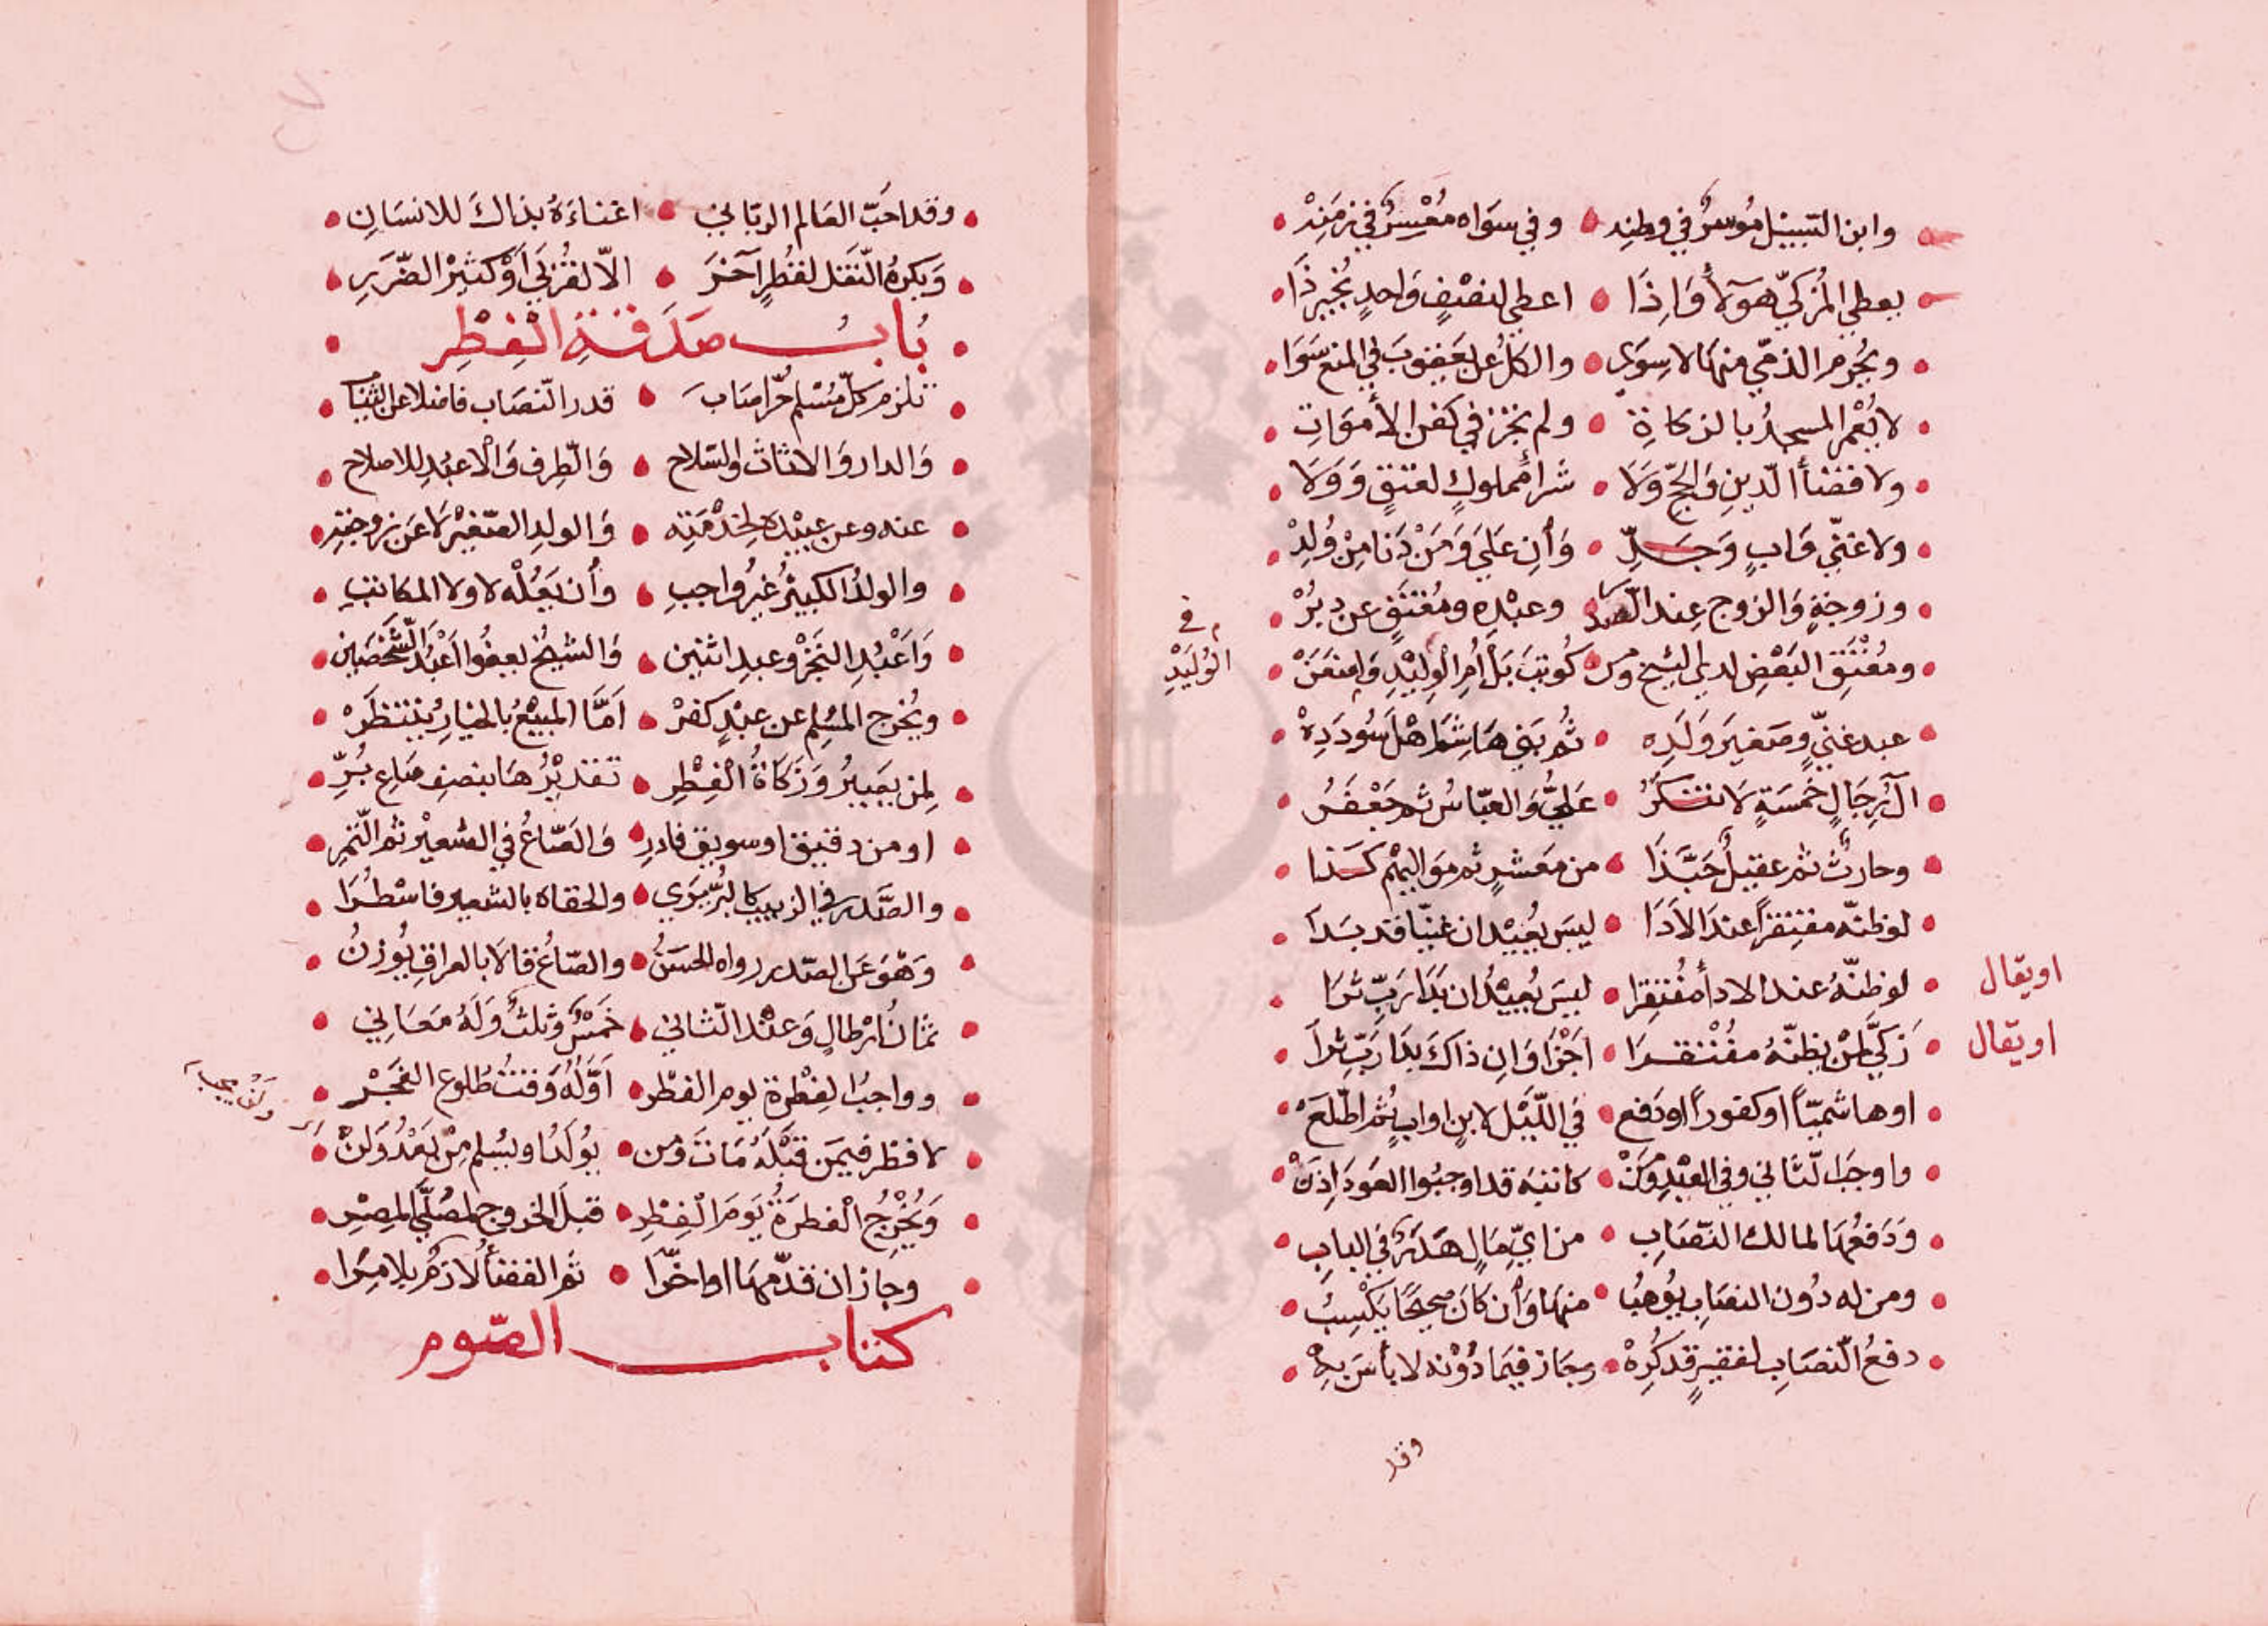 وابن السبيل موسر في وطنه • وفي سواه معسر في زمنه
يعطي المزكي هؤلا وإذا • اعطي لنصف واحد يجيز ذا
ويحرم الذمي منها لا سوى • والكل عن يعقوب في المنع سوا
لا يُعمر المسجد بالزكاة • ولم تجز في كفن الأموات
ولا قضا الدين والحج ولا • شرا مملوك لعتق وولا
ولا غني وأب وجد • وأن علي ومن دنا من وُلد
وزوجة والزوج عند الصدر • وعبده ومعتق عن دبر
ومعتق البعض لدى الشيخ ومن • كوتب بل أم الوليد وامنعن
م في الوُليد
عبد غني وصغير ولده • ثم بني هاشم اهل سودده
آل رجال خمسة لا تنكر • علي والعباس ثم جعفر
وحارث ثم عقيل حبذا • من معشر ثم مواليهم كذا
لو ظنه مفتقرا عند الادا • ليس يعيد ان غنيا قد بدا
اويقال
لو ظنه عند الادا مفتقرا • ليس يعيد ان بدا رب ثرا
اويقال
زكي لمن يظنه مفتقرا • اجزا وان ذاك بدا رب ثرا
او هاشميا او كفورا او دفع • في الليل لابن او اب ثم اطلع
واوجب الثاني وفي العبد ومن • كاتبه قد اوجبوا العود اذن
ودفعها لمالك النصاب • من اي مال هدر في الباب
ومن له دون النصاب يوهب • منها وأن كان صحيحا يكسب
دفع النصاب لفقير قد كره • وجاز فيما دونه لا بأس به
وقد
وقد احب العالم الرباني • اغناءه بذاك للانسان
ويكره النقل لقطر آخر • الا لقربى أو كثير الضرر
باب صدقة الفطر
تلزم كل مسلم حر اصاب • قدر النصاب فاضلا عن الثياب
والدار والاثاث والسلاح • والطرف والاعبد للاصلاح
عنه وعن عبيده لخدمته • والولد الصغير لا عن زوجته
والولد الكبير غير واجب • وأن يعله لا ولا المكاتب
واعبد التجر وعبد اثنين • والشيخ يعفو اعبد الشخصين
ويخرج المسلم عن عبد كفر • اما المبيع بالخيار ينتظر
لمن يصير وزكاة الفطر • تقديرها بنصف صاع بر
او من دقيق او سويق فادر • والصاع في الشعير ثم التمر
والصدر في الزبيب كالبر يرى • والحقاه بالشعير فاسطرا
وهو عن الصدر رواه الحسن • والصاع قالا بالعراقي يوزن
ثمان ارطال وعند الثاني • خمس وثلث وله معاني
وواجب الفطرة يوم الفطر • اوله وقت طلوع الفجر
لا فطر فيمن قبله مات ومن • يولد او يسلم من بعد ولن
ولن يجب
ويخرج الفطرة يوم الفطر • قبل الخروج لمصلى المصر
وجاز ان قدمها او اخرا • ثم القضا لازم بلا مرا
كتاب الصوم